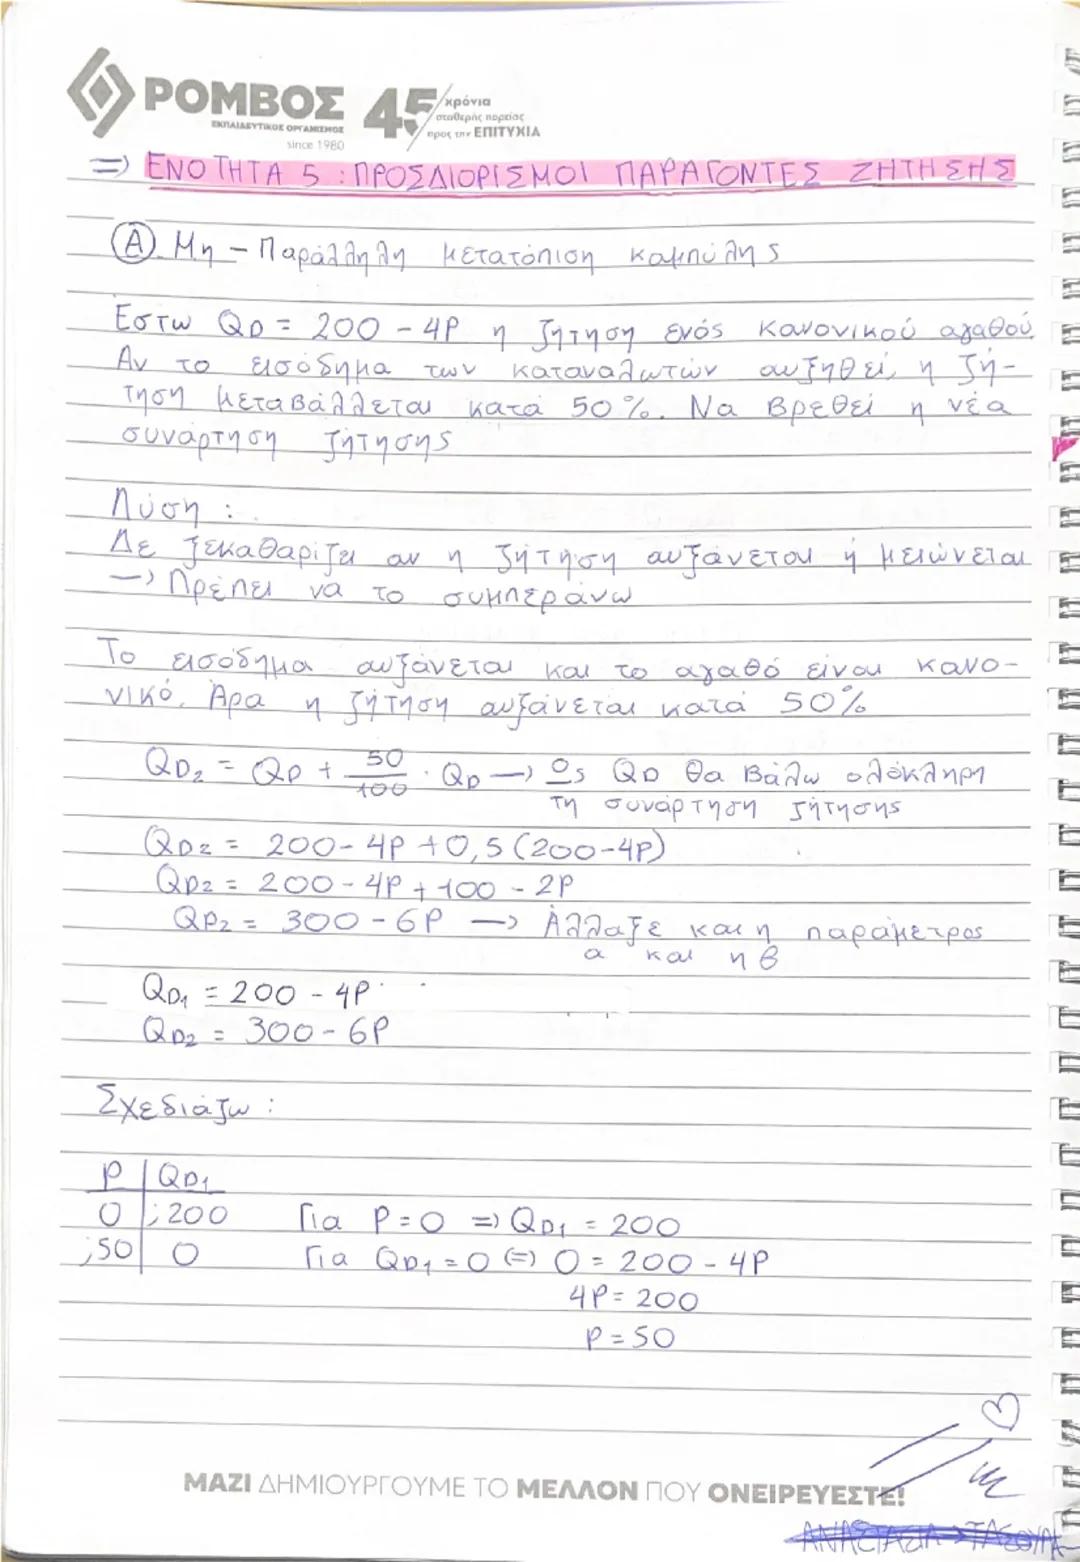 ΡΟΜΒΟΣ 45 χρόνια
ΕΚΠΑΙΔΕΥΤΙΚΟΣ ΟΡΓΑΝΙΣΜΟΣ σταθερής πορείας
since 1980 προς την ΕΠΙΤΥΧΙΑ
=> ΕΝΟΤΗΤΑ 5 : ΠΡΟΣΔΙΟΡΙΣΜΟΙ ΠΑΡΑΓΟΝΤΕΣ ΖΗΤΗΣΗΣ
Α. Μη - Παράλληλη μετατόπιση καμπύλης
Εστω QD = 200 - 4P η ζήτηση ενός κανονικού αγαθού.
Αν το εισόδημα των καταναλωτών αυξηθεί, η ζή-
τηση μεταβάλλεται κατά 50%. Να βρεθεί η νέα
συνάρτηση ζήτησης
Λύση :
Δε ξεκαθαρίζει αν η ζήτηση αυξάνεται ή μειώνεται
-> Πρέπει να το συμπεράνω
Το εισόδημα αυξάνεται και το αγαθό είναι κανο-
νικό. Αρα η ζήτηση αυξάνεται κατά 50%
QD₂ = QD + 50/100 · QD -> Ος QD θα βάλω ολόκληρη
τη συνάρτηση ζήτησης
QD₂ = 200 - 4P + 0,5 (200-4P)
QD₂ = 200 - 4P + 100 - 2P
QD₂ = 300 - 6P -> Αλλαξε και η παράμετρος
α και η β
QD₁ = 200 - 4P
QD₂ = 300 - 6P
Σχεδιάζω :
P | QD₁
0 | ; 200 Για P = 0 => QD₁ = 200
;50 | 0 Για QD₁ = 0 (=) 0 = 200 - 4P
4P = 200
P = 50
ΜΑΖΙ ΔΗΜΙΟΥΡΓΟΥΜΕ ΤΟ ΜΕΛΛΟΝ ΠΟΥ ΟΝΕΙΡΕΥΕΣΤΕ!